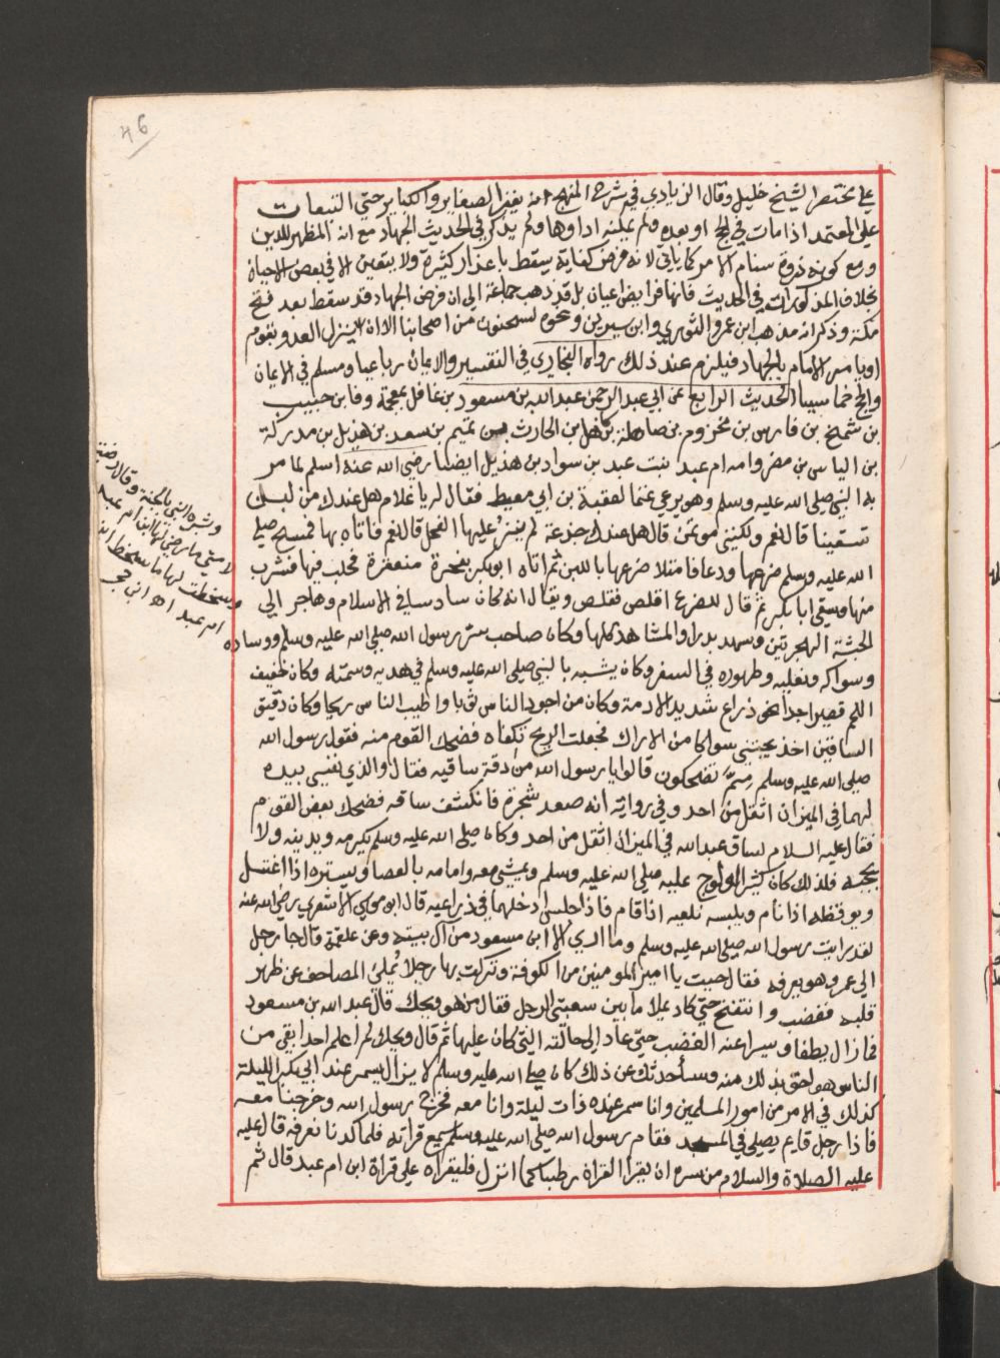 46
علي مختصر الشيخ خليل وقال الزيادي في شرح المنهج انه يغفر الصغاير والكباير حتي التبعات
علي المعتمد اذا مات في الحج او بعده ولم يمكنه اداوها ولم يذكر في الحديث الجهاد مع انه المظهر للدين
ومع كونه ذروة سنام الامر كما ياتي لانه فرض كفاية يسقط باعذار كثيرة ولا يتعين الا في بعض الاحيان
بخلاف المذكورات في الحديث فانها فرايض اعيان بل قد ذهب جماعة الي ان فرض الجهاد قد سقط بعد فتح
مكة وذكر انه مذهب ابن عمر والثوري وابن سيرين ونحوه لسحنون من اصحابنا الا ان ينزل العدو بقوم
او يامر الامام بالجهاد فيلزم عند ذلك رواه البخاري في التفسير والايمان رباعيا ومسلم في الايمان
والحج خماسيا الحديث الرابع عن ابي عبد الرحمن عبد الله بن مسعود بن غافل بمعجمة وفا بن حبيب
بن شمخ بن فارس بن مخزوم بن صاهلة بن كاهل بن الحارث بن تميم بن سعد بن هذيل بن مدركة
بن الياس بن مضر وامه ام عبد بنت عبد بن سواد بن هذيل ايضا رضي الله عنه اسلم لما مر
به النبي صلي الله عليه وسلم وهو يرعي غنما لعقبة بن ابي معيط فقال له يا غلام هل عندك من لبن
تسقينا قال نعم ولكنني موتمن قال هل عندك جذعة لم ينز عليها الفحل قال نعم فاتاه بها فمسح صلي
الله عليه وسلم ضرعها ودعا فامتلا ضرعها باللبن ثم اتاه ابو بكر بصخرة منقعرة فحلب فيها فشرب
منها وسقي ابا بكر ثم قال للضرع اقلص فقلص ويقال انه كان سادسا في الاسلام وهاجر الي
الحبشة الهجرتين وشهد بدرا والمشاهد كلها وكان صاحب سر رسول الله صلي الله عليه وسلم ووساده
وسواكه ونعليه وطهوره في السفر وكان يشبه بالنبي صلي الله عليه وسلم في هديه وسمته وكان خفيف
اللحم قصيرا جدا نحو ذراع شديد الادمة وكان من اجود الناس ثوبا واطيب الناس ريحا وكان دقيق
الساقين اخذ يجتني سواكا من الاراك فجعلت الريح تكفاه فضحك القوم منه فقول رسول الله
صلي الله عليه وسلم مم تضحكون قالوا يا رسول الله من دقة ساقيه فقال والذي نفسي بيده
لهما في الميزان اثقل من احد وفي رواية انه صعد شجرة فانكشف ساقه فضحك بعض القوم
فقال عليه السلام لساق عبد الله في الميزان اثقل من احد وكان صلي الله عليه وسلم يكرمه ويدنيه ولا
يحجبه فلذلك كان كثير الولوج عليه صلي الله عليه وسلم ويمشي معه وامامه بالعصا ويستره اذا اغتسل
ويوقظه اذا نام ويلبسه نعليه اذا قام فاذا جلس ادخلهما في ذراعيه قال ابو موسي الاشعري رضي الله عنه
لقد رايت رسول الله صلي الله عليه وسلم وما اري الا ابن مسعود من آل بيته وعن علقمة قال جا رجل
الي عمر وهو بعرفه فقال جيت يا امير المومنين من الكوفة وتركت بها رجلا يملي المصاحف عن ظهر
قلبه فغضب وانتفخ حتي كاد يملا ما بين شعبتي الرحل فقال من هو ويحك قال عبد الله بن مسعود
فما زال يطفا ويسرا عنه الغضب حتي عاد الي حالته التي كان عليها ثم قال ويحك لم اعلم احدا بقي من
الناس هو احق بذلك منه وساحدثك عن ذلك كان صلي الله عليه وسلم لا يزال يسمر عند ابي بكر الليلة
كذلك في الامر من امور المسلمين وانا سمر عنده ذات ليلة وانا معه فخراج رسول الله وخرجنا معه
فاذا رجل قايم يصلي في المسجد فقام رسول الله صلي الله عليه وسلم يسمع قراته فلما كدنا نعرفه قال عليه
عليه الصلاة والسلام من سره ان يقرا القراة رطبا كما انزل فليقراه علي قراة ابن ام عبد قال ثم
وبشره النبي بالجنة وقال رضيت
لامتي ما رضي لها ابن ام عبد
وسخطت لها ما سخط ابن
ام عبد اه ابن حجر